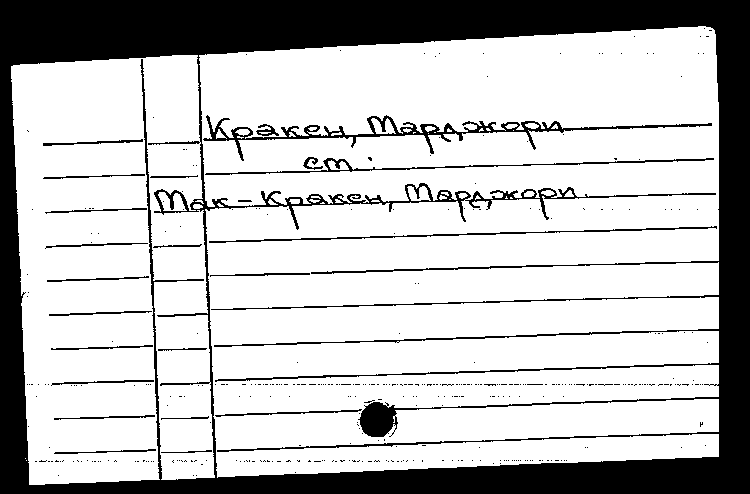 Кракен, Марджори
см.:
Мак-Кракен, Марджори.